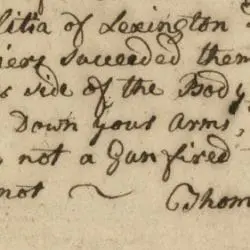 litia of Lexington
iers succeeded them
side of the Body
Down your Arms,
not a Gun fired
not ~ Thom